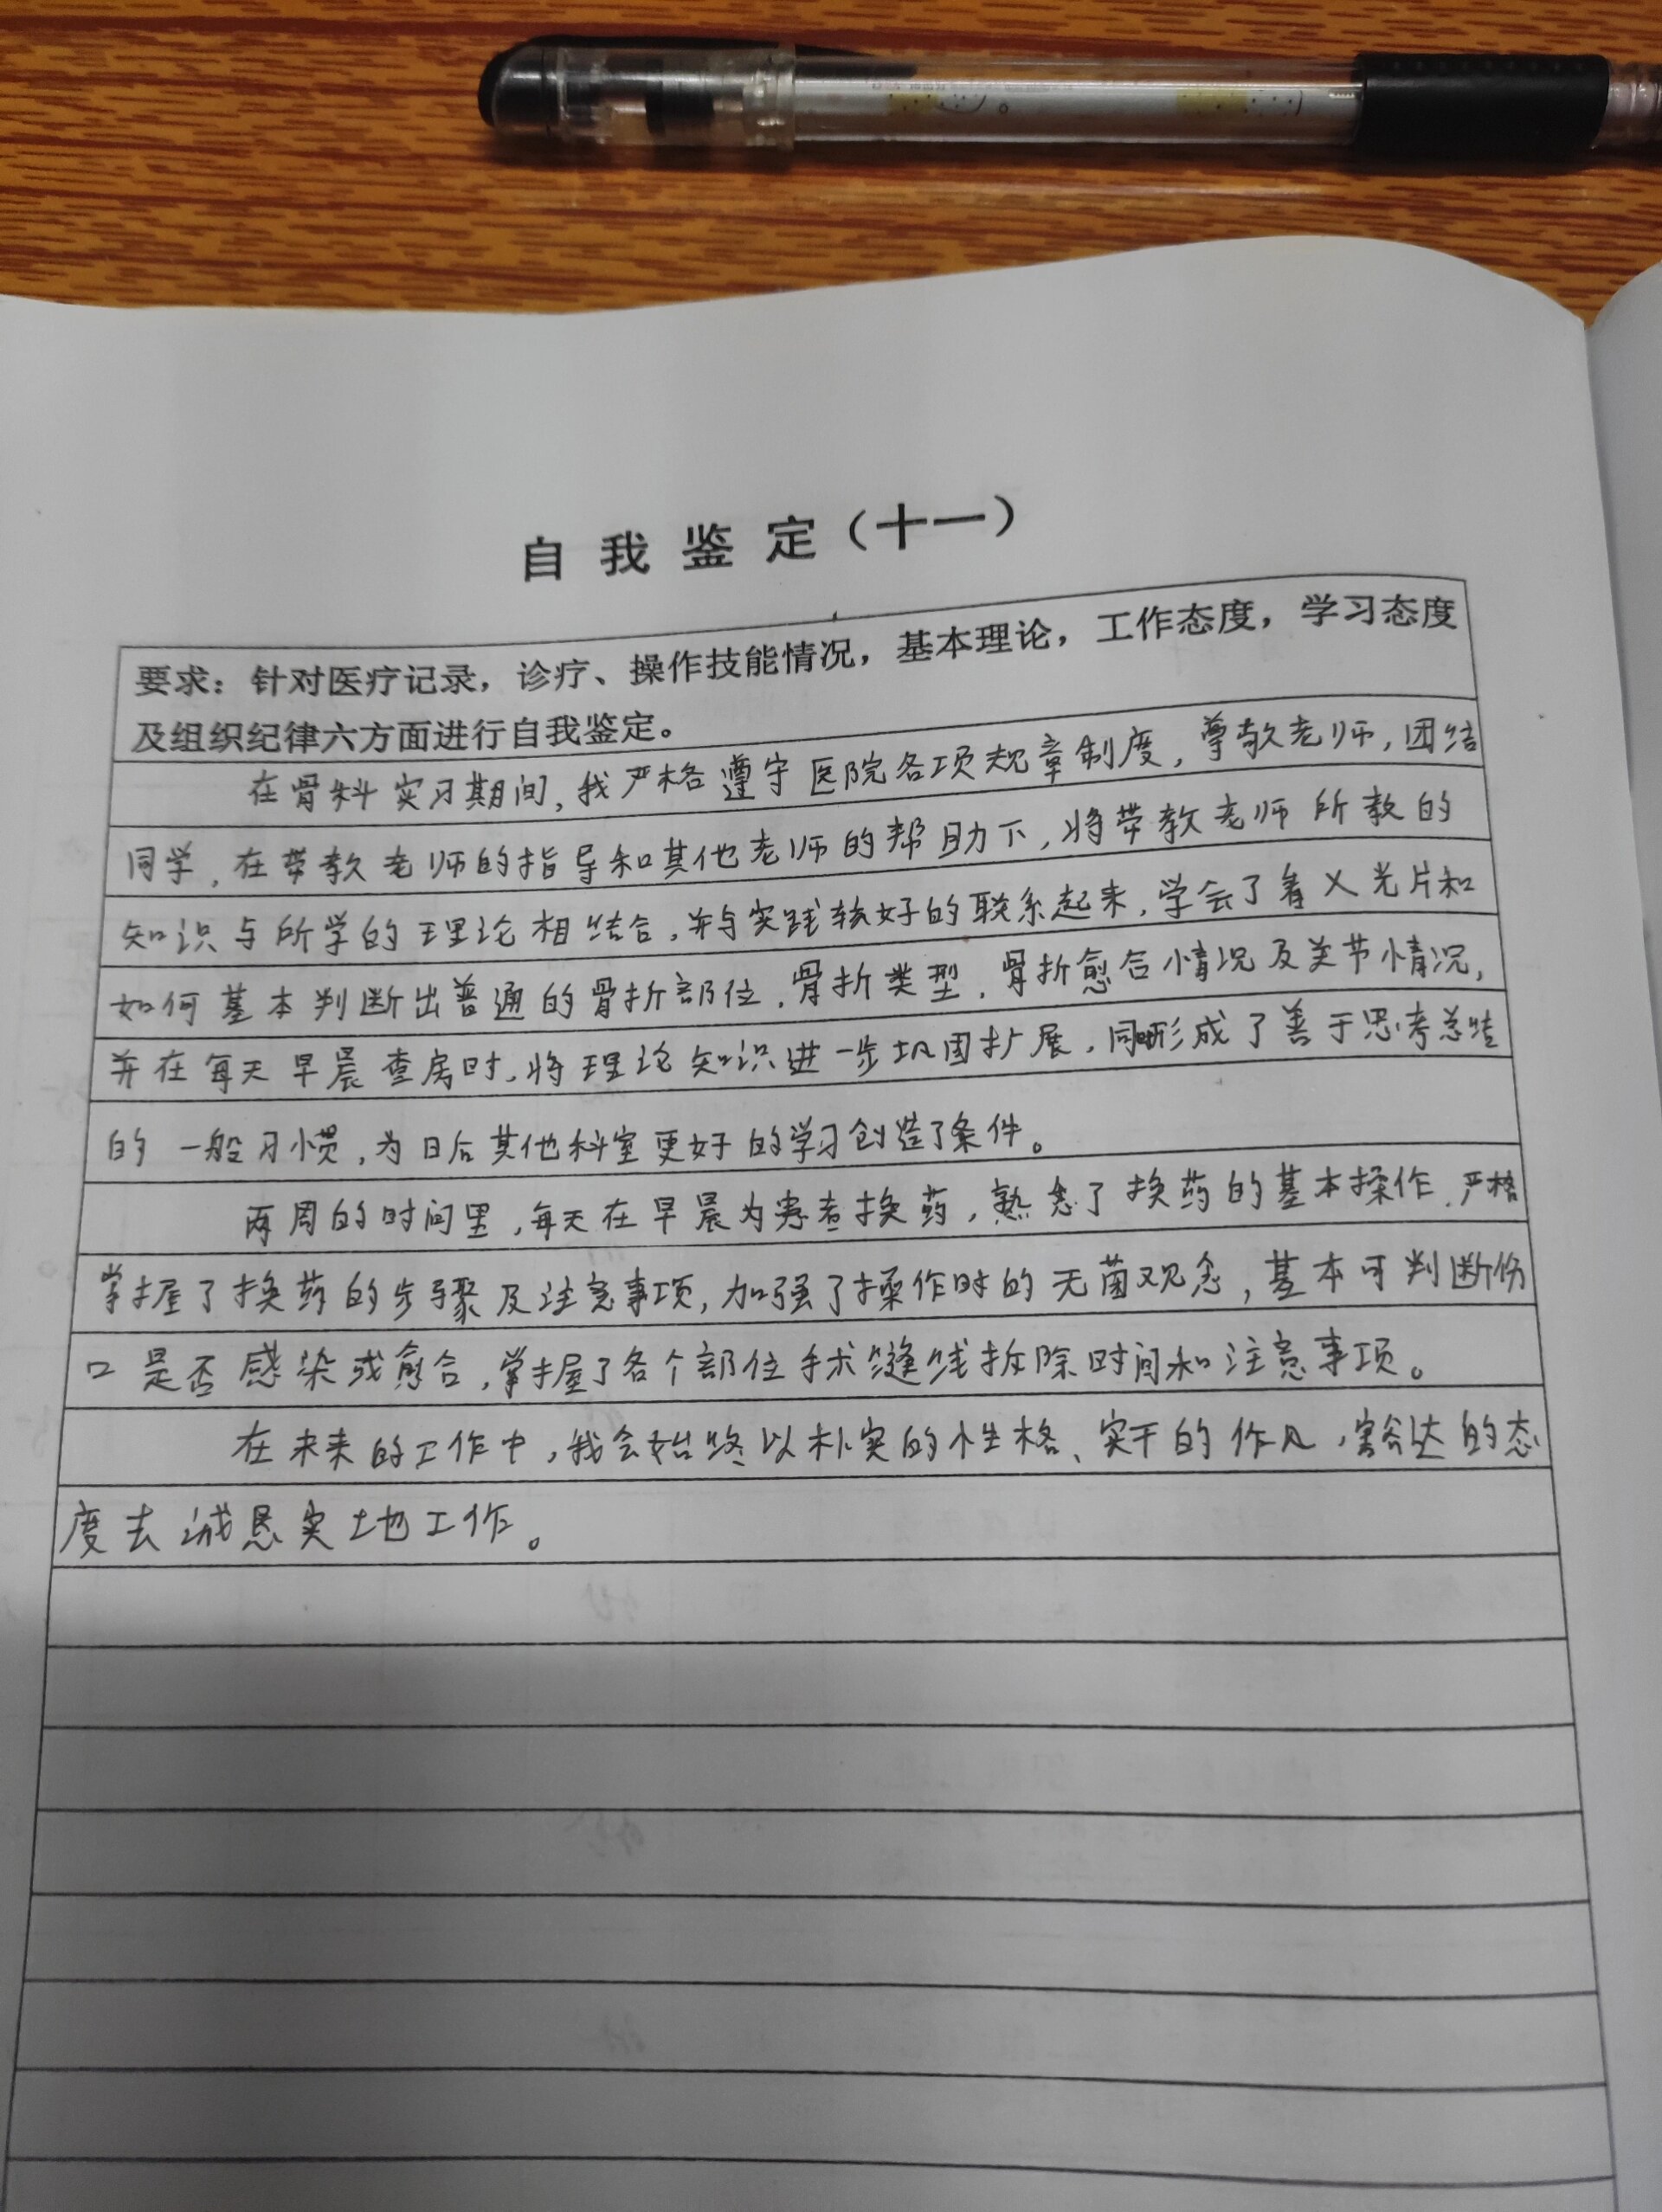 自我鉴定（十一）
要求：针对医疗记录，诊疗、操作技能情况，基本理论，工作态度，学习态度
及组织纪律六方面进行自我鉴定。
在骨科实习期间，我严格遵守医院各项规章制度，尊敬老师，团结
同学，在带教老师的指导和其他老师的帮助下，将带教老师所教的
知识与所学的理论相结合，并与实践较好的联系起来，学会了看X光片和
如何基本判断出普通的骨折部位，骨折类型，骨折愈合情况及关节情况，
并在每天早晨查房时，将理论知识进一步巩固扩展，同时形成了善于思考总结
的一般习惯，为日后其他科室更好的学习创造了条件。
两周的时间里，每天在早晨为患者换药，熟悉了换药的基本操作，严格
掌握了换药的步骤及注意事项，加强了操作时的无菌观念，基本可判断伤
口是否感染或愈合，掌握了各个部位手术缝线拆除时间和注意事项。
在未来的工作中，我会始终以朴实的性格、实干的作风，豁达的态
度去诚恳实地工作。